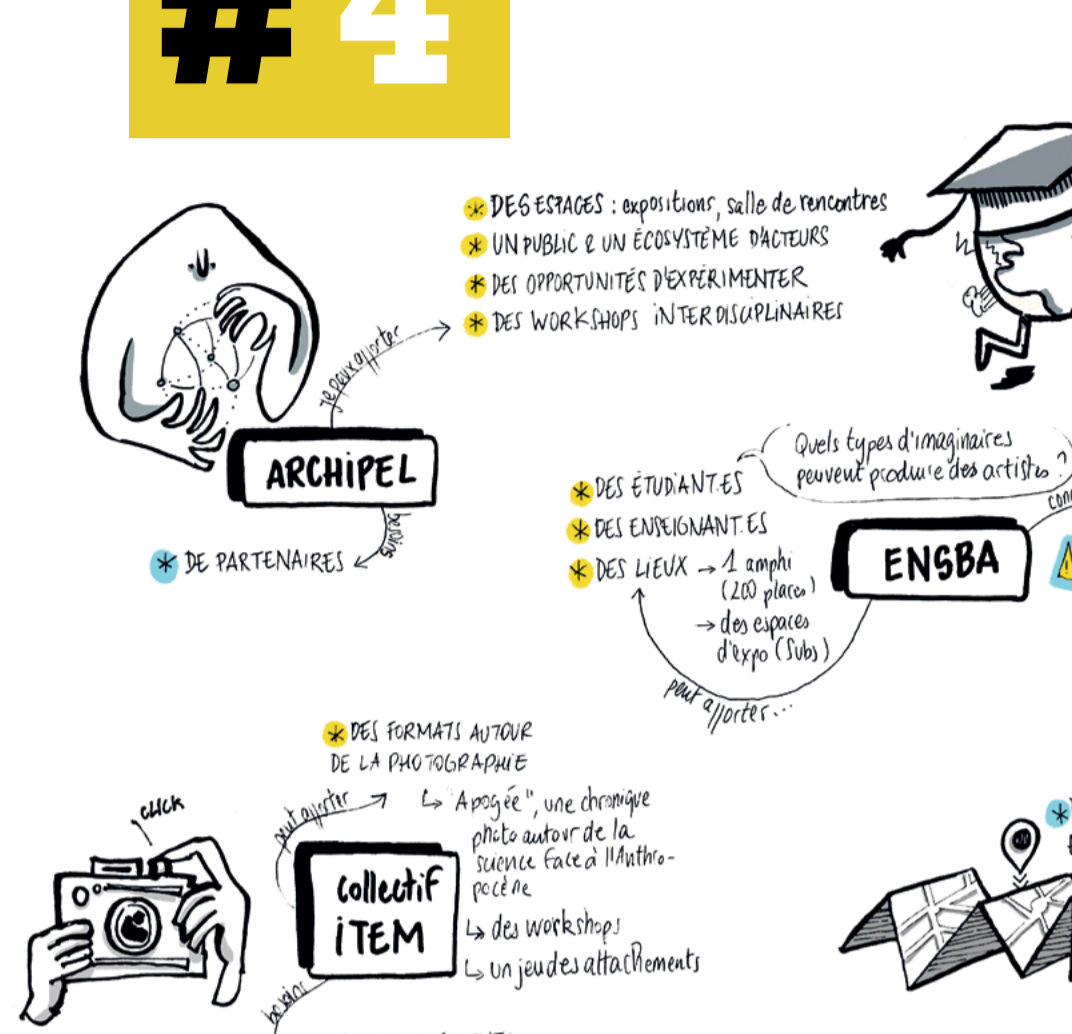 # 4
* DES ESPACES : expositions, salle de rencontres
* UN PUBLIC & UN ÉCOSYSTÈME D'ACTEURS
* DES OPPORTUNITÉS D'EXPÉRIMENTER
* DES WORKSHOPS INTERDISCIPLINAIRES
je peux apporter
ARCHIPEL
besoins
* DE PARTENAIRES
Quels types d'imaginaires
peuvent produire des artistes ?
* DES ÉTUDIANT.ES
* DES ENSEIGNANT.ES
* DES LIEUX → 1 amphi
(200 places)
→ des espaces
d'expo (Subs)
ENSBA
peut apporter...
* DES FORMATS AUTOUR
DE LA PHOTOGRAPHIE
peut apporter
↳ "Apogée", une chronique
photo autour de la
science face à l'Anthro-
pocène
↳ des workshops
↳ un jeu des attachements
CLICK
collectif
iTEM
besoins